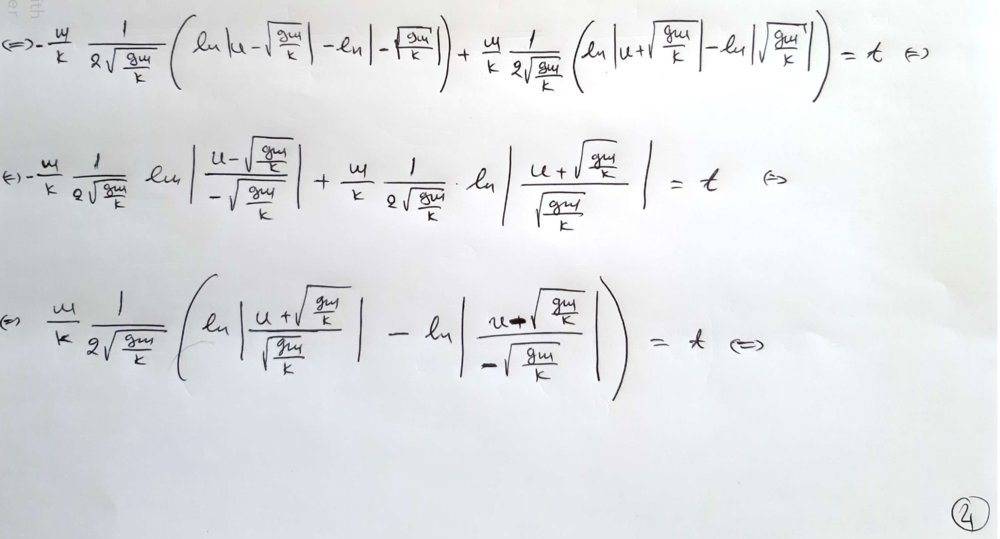 ⇔ -\frac{m}{k} \frac{1}{2\sqrt{\frac{gm}{k}}} \left( \ln\left|u-\sqrt{\frac{gm}{k}}\right| - \ln\left|-\sqrt{\frac{gm}{k}}\right| \right) + \frac{m}{k} \frac{1}{2\sqrt{\frac{gm}{k}}} \left( \ln\left|u+\sqrt{\frac{gm}{k}}\right| - \ln\left|\sqrt{\frac{gm}{k}}\right| \right) = t ⇔
⇔ -\frac{m}{k} \frac{1}{2\sqrt{\frac{gm}{k}}} \ln\left|\frac{u-\sqrt{\frac{gm}{k}}}{-\sqrt{\frac{gm}{k}}}\right| + \frac{m}{k} \frac{1}{2\sqrt{\frac{gm}{k}}} \cdot \ln\left|\frac{u+\sqrt{\frac{gm}{k}}}{\sqrt{\frac{gm}{k}}}\right| = t ⇔
⇔ \frac{m}{k} \frac{1}{2\sqrt{\frac{gm}{k}}} \left( \ln\left|\frac{u+\sqrt{\frac{gm}{k}}}{\sqrt{\frac{gm}{k}}}\right| - \ln\left|\frac{u-\sqrt{\frac{gm}{k}}}{-\sqrt{\frac{gm}{k}}}\right| \right) = t ⇔